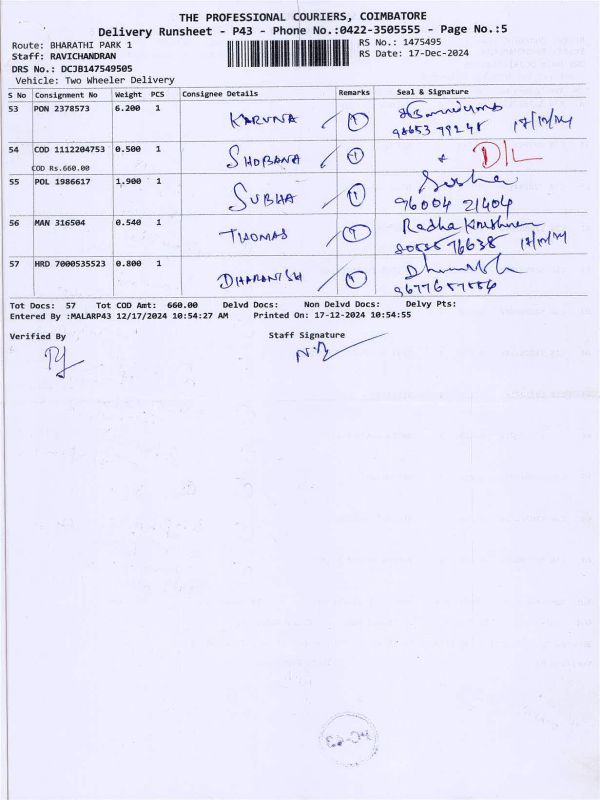 THE PROFESSIONAL COURIERS, COIMBATORE
Delivery Runsheet - P43 - Phone No.:0422-3505555 - Page No.:5
Route: BHARATHI PARK 1 RS No.: 1475495
Staff: RAVICHANDRAN RS Date: 17-Dec-2024
DRS No.: DCJB147549505
Vehicle: Two Wheeler Delivery
S No Consignment No Weight PCS Consignee Details Remarks Seal & Signature
53 PON 2378573 6.200 1 KARUNA 1
98653 79248 17/12/24
54 COD 1112204753 0.500 1 SHOBANA 1 D/L
COD Rs.660.00
55 POL 1986617 1.900 1 SUBHA 1
96004 21404
56 MAN 316504 0.540 1 THOMAS 1 Radha Krishnan
76638 17/12/24
57 HRD 7000535523 0.800 1 DHARANISH 1
Tot Docs: 57 Tot COD Amt: 660.00 Delvd Docs: Non Delvd Docs: Delvy Pts:
Entered By :MALARP43 12/17/2024 10:54:27 AM Printed On: 17-12-2024 10:54:55
Verified By Staff Signature